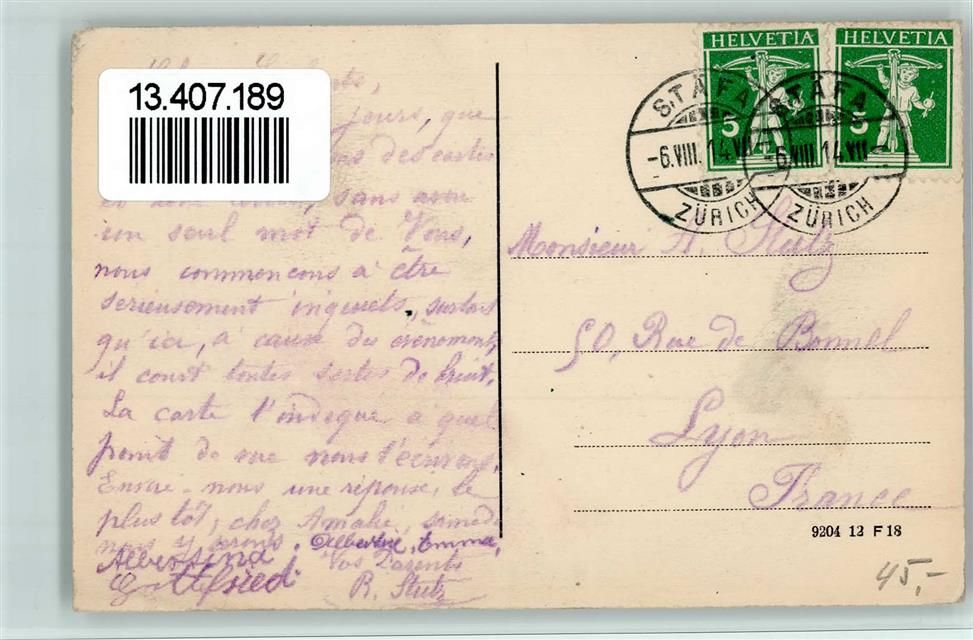 13.407.189
jours, que
des cartes
sans avoir
un seul mot de Vous,
nous commencons à être
serieusement inqiuets, surtout
qu'ici, à cause des évênements,
il court toutes sortes de bruit.
La carte t'indique à quel
point de vue nous t'écrivons.
Envoie-nous une réponse, le
plus tôt, chez Amalie, samedi
nous y serons. Albertine, Emma,
Albertina Vos Parents
Gottfried. R. Stutz
HELVETIA HELVETIA
5 5
STÄFA STÄFA
-6.VIII.14.VII -6.VIII.14.VII
ZÜRICH ZÜRICH
Monsieur A. Stutz
50, Rue de Bonnel
Lyon
France
9204 12 F 18
45,-